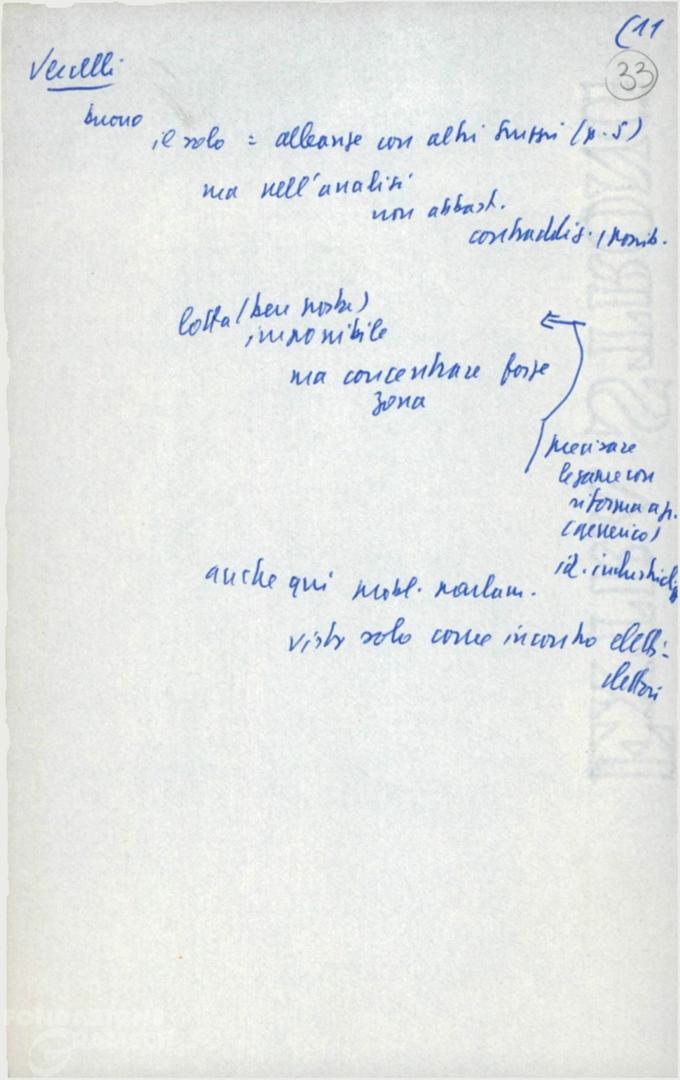 (11
33
Vercelli
buono
il solo = alleanze con altri gruppi (p. 5)
ma nell'analisi
non abbast.
contraddiz.
lotta (bene posta)
imponibile
ma concentrare forze
zona
precisare
legame con
riforma agr.
(generico)
id. industriali
anche qui probl. parlam.
visto solo come incontro eletti-
elettori
FONDAZIONE
GRAMSCI